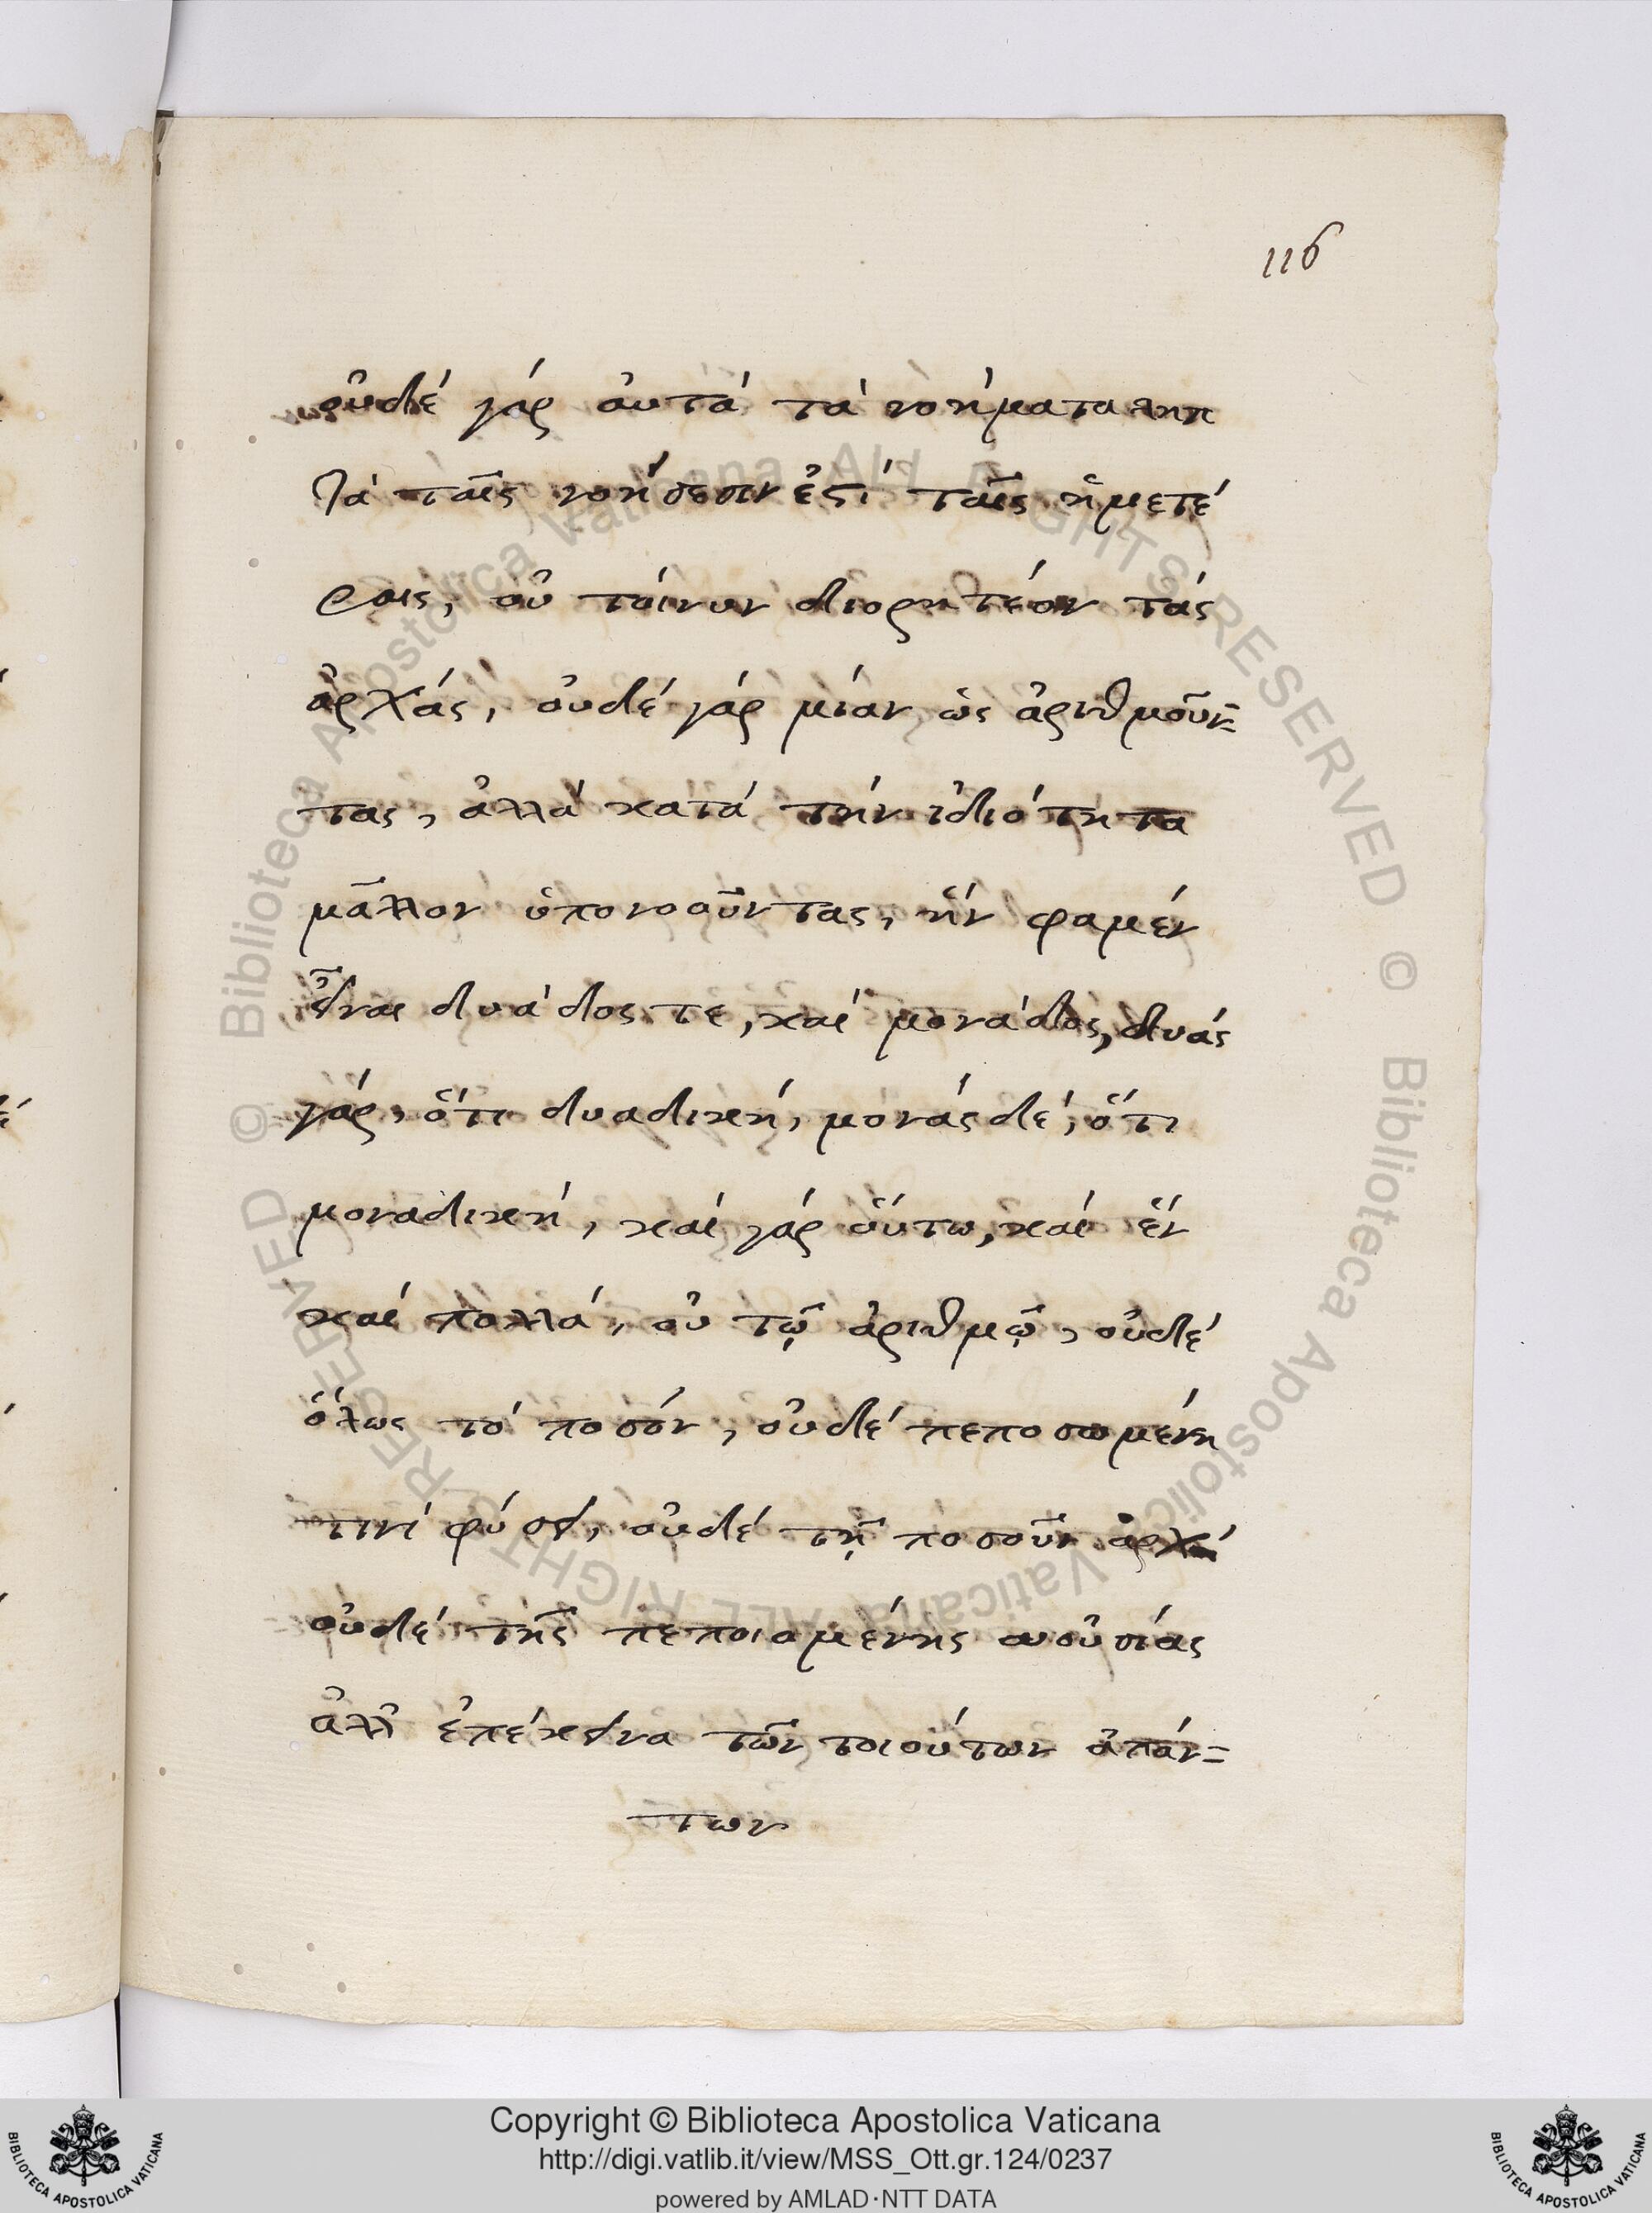 116
οὐδέ γάρ αὐτά τά νοήματα ληπ
τά ταῖς νοήσεσιν ἐστί ταῖς ἡμετέ
ραις, οὐ τοίνυν διορητέον τάς
ἀρχάς, οὐδέ γάρ μίαν ὡς ἀριθμοῦν=
τας, ἀλλά κατά τήν ἰδιότητα
μᾶλλον ὑπονοοῦντας, ἥν φαμέν
εἶναι δυάδος τε, καί μονάδος, δυάς
γάρ, ὅτι δυαδική, μονάς δέ, ὅτι
μοναδική, καί γάρ οὕτω, καί ἕν
καί πολλά, οὐ τῷ ἀριθμῷ, οὐδέ
ὅλως τό ποσόν, οὐδέ πεποσωμένη
τινί φύσει, οὐδέ τῇ ποσοῦν ἀρχῇ
οὐδέ τῆς πεποιωμένης οὐσίας
ἀλλ' ἐπέκεινα τῶν τοιούτων ἁπάν=
των
© Biblioteca Apostolica Vaticana ALL RIGHTS RESERVED © Biblioteca Apostolica Vaticana ALL RIGHTS RESERVED
Copyright © Biblioteca Apostolica Vaticana
http://digi.vatlib.it/view/MSS_Ott.gr.124/0237
powered by AMLAD·NTT DATA
BIBLIOTECA APOSTOLICA VATICANA
BIBLIOTECA APOSTOLICA VATICANA